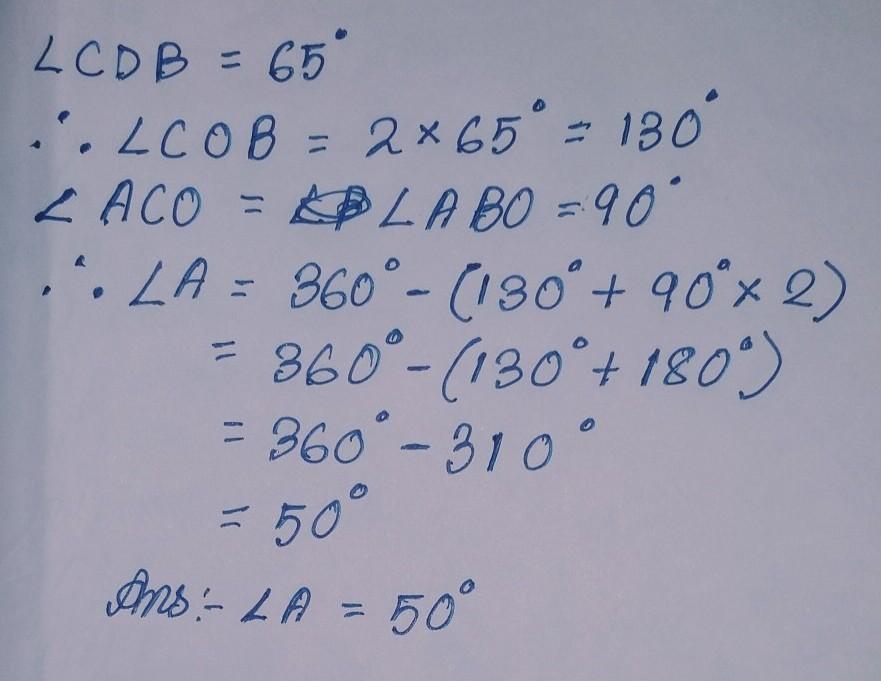 ∠CDB = 65°
∴ ∠COB = 2 × 65° = 130°
∠ACO = ∠ABO = 90°
∴ ∠A = 360° - (130° + 90° × 2)
= 360° - (130° + 180°)
= 360° - 310°
= 50°
Ans:- ∠A = 50°